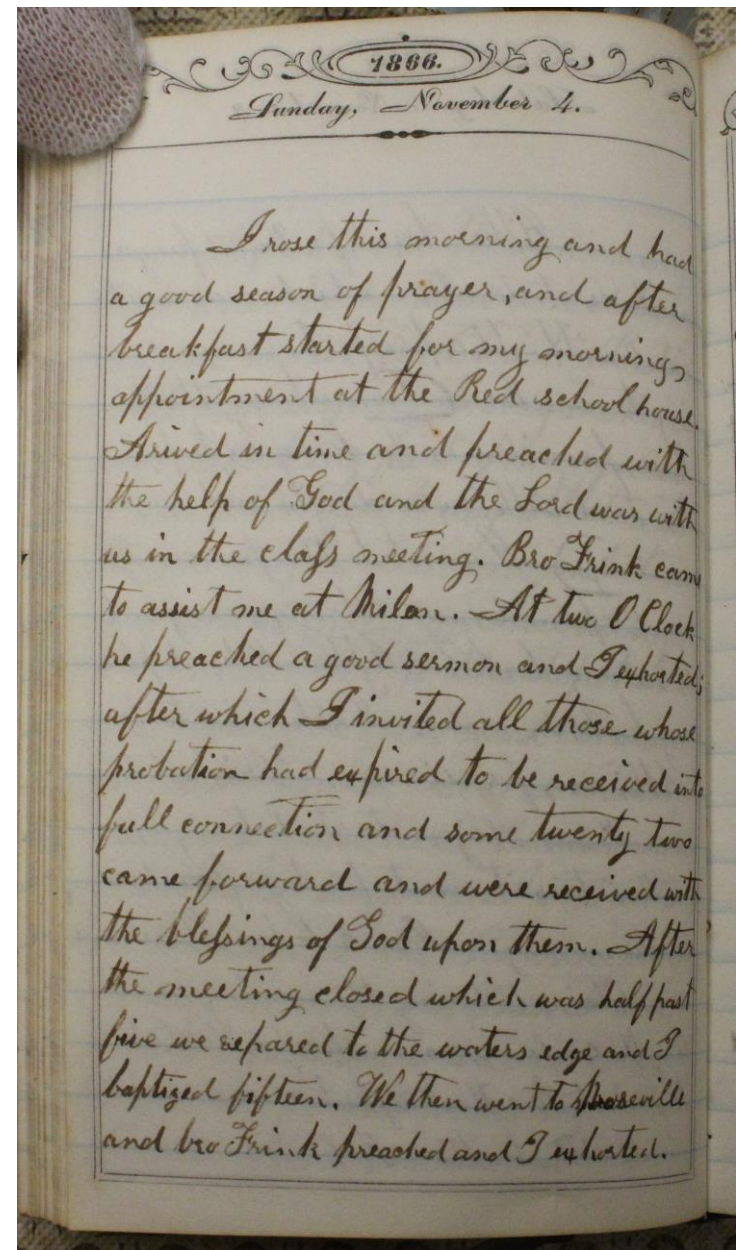 1866.
Sunday, November 4.
I rose this morning and had
a good season of prayer, and after
breakfast started for my morning
appointment at the Red school house.
Arived in time and preached with
the help of God and the Lord was with
us in the claſs meeting. Bro Frink came
to assist me at Milan. At two O Clock
he preached a good sermon and I exhorted;
after which I invited all those whose
probation had expired to be received into
full connection and some twenty two
came forward and were received with
the bleſsings of God upon them. After
the meeting closed which was half past
five we repared to the waters edge and I
baptized fifteen. We then went to
and bro Frink preached and I exhorted.